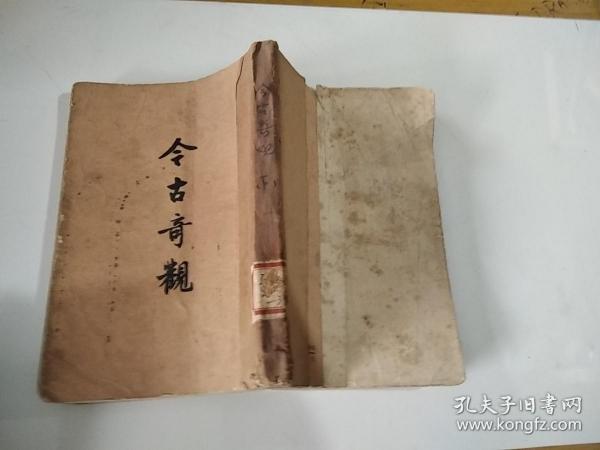 今古奇觀
今古奇观
孔夫子旧书网
www.kongfz.com